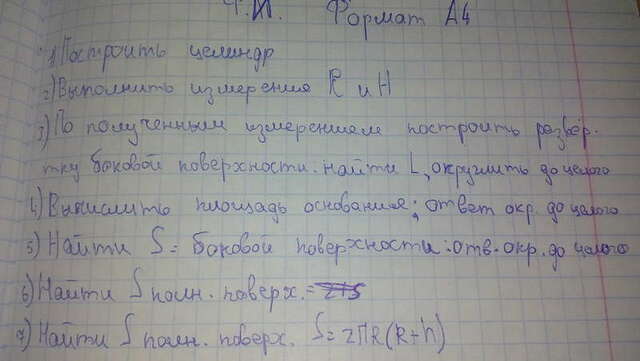 Ч.И. Формат А4
1) Построить цилиндр
2) Выполнить измерения R и H
3) По полученным измерениям построить развёр-
тку боковой поверхности. найти L, округлить до целого
4) Вычислить площадь основания; ответ окр. до целого
5) Найти S = боковой поверхности: отв. окр. до целого
6) Найти S полн. поверх. =
7) Найти S полн. поверх. S = 2ПR(R+h)